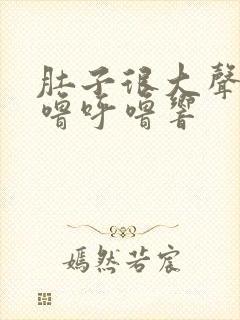 肚子很大聲
嚕呼嚕響
嫣然若宸